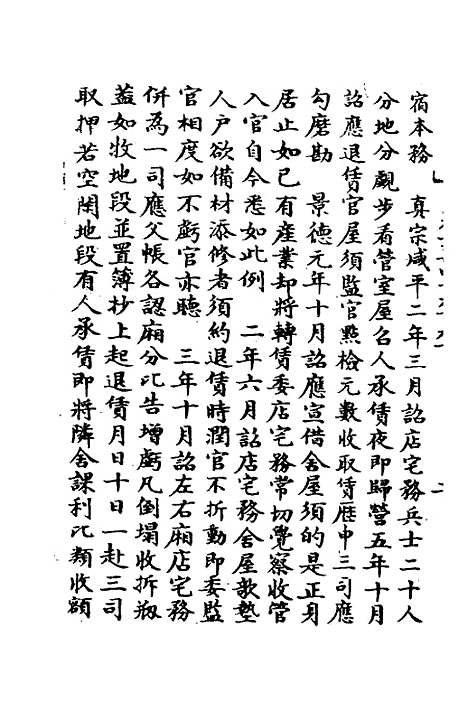 宿本務　真宗咸平二年三月詔店宅務兵士二十人
分地分覷步看管室屋召人承賃夜即歸營五年十月
詔應退賃官屋須監官點檢元數收取賃歷申三司應
勾磨勘　景德元年十月詔應宣借舍屋須的是正身
居止如已有産業却將轉賃委店宅務常切覺察收管
入官自今悉如此例　二年六月詔店宅務舍屋欹墊
人户欲備材添修者須約退賃時潤官不折動即委監
官相度如不虧官亦聽　三年十月詔左右廂店宅務
併為一司應父帳各認廂分比告增虧凡倒塌收拆瓶
蓋如牧地段並置簿抄上起退賃月日十日一赴三司
取押若空閑地段有人承賃即將隣舍課利比類收額